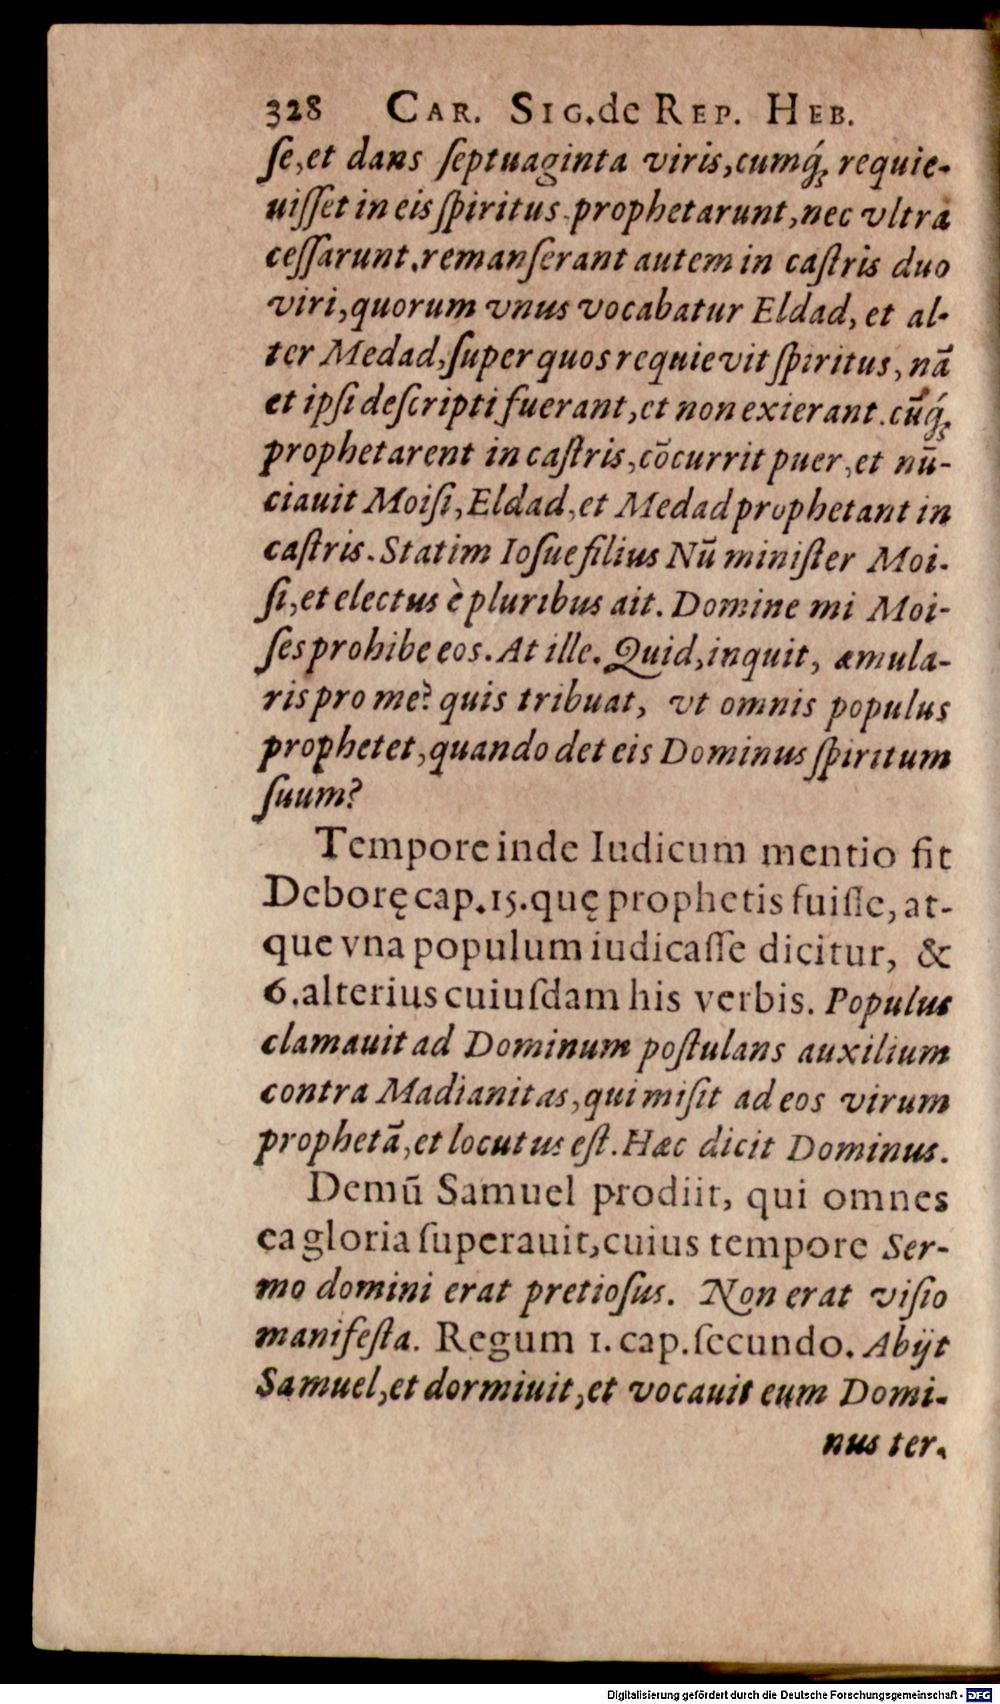 328 CAR. SIG. de REP. HEB.
ſe, et dans ſeptuaginta viris, cumq́ꝫ requie-
uiſſet in eis ſpiritus prophetarunt, nec vltra
ceſſarunt. remanſerant autem in caſtris duo
viri, quorum vnus vocabatur Eldad, et al-
ter Medad, ſuper quos requievit ſpiritus, nã
et ipſi deſcripti fuerant, et non exierant. cũq́ꝫ
prophetarent in caſtris, cõcurrit puer, et nũ-
ciauit Moiſi, Eldad, et Medad prophetant in
caſtris. Statim Ioſue filius Nũ miniſter Moi-
ſi, et electus è pluribus ait. Domine mi Moi-
ſes prohibe eos. At ille. Quid, inquit, æmula-
ris pro me? quis tribuat, vt omnis populus
prophetet, quando det eis Dominus ſpiritum
ſuum?
Tempore inde Iudicum mentio fit
Deborę cap. 15. quę prophetis fuiſſe, at-
que vna populum iudicaſſe dicitur, &
6. alterius cuiuſdam his verbis. Populus
clamauit ad Dominum poſtulans auxilium
contra Madianitas, qui miſit ad eos virum
prophetã, et locutus eſt. Hæc dicit Dominus.
Demũ Samuel prodiit, qui omnes
ea gloria ſuperauit, cuius tempore Ser-
mo domini erat pretioſus. Non erat viſio
manifeſta. Regum 1. cap. ſecundo. Abijt
Samuel, et dormiuit, et vocauit eum Domi-
nus ter.
Digitalisierung gefördert durch die Deutsche Forschungsgemeinschaft - DFG